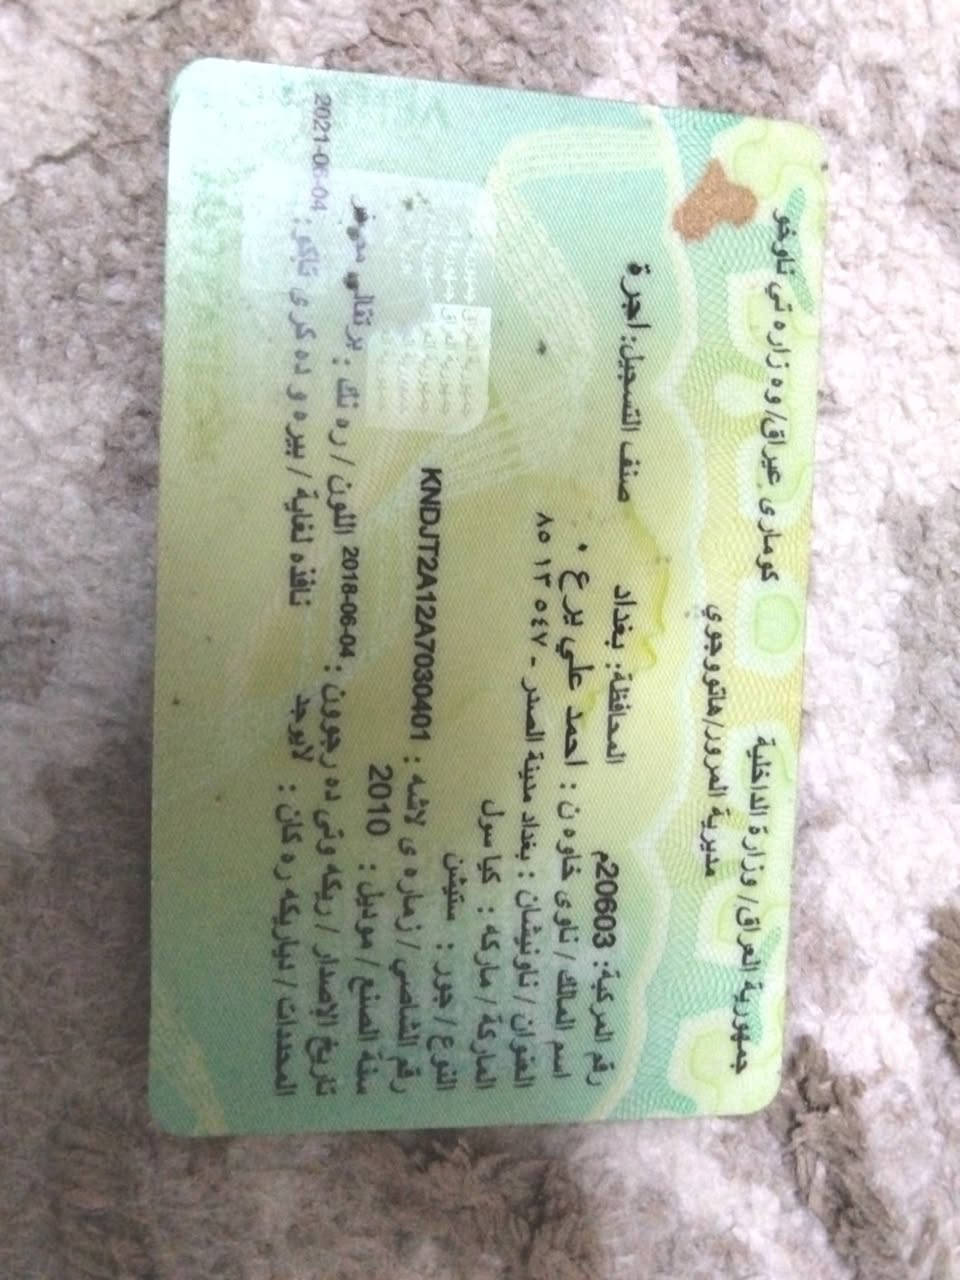 جمهورية العراق/ وزارة الداخلية كوماري عيراق/ وه زاره تي ناوخو
مديرية المرور/هاتووجوي
رقم المركبة: 20603م المحافظة: بغداد صنف التسجيل: اجرة
اسم المالك / ناوى خاوه ن : احمد علي
العنوان / ناونيشان : بغداد مدينة الصدر - ٥٤٧ ١٣ ٨٥
الماركة / ماركه : كيا سول
النوع / جور : ستيشن
رقم الشاصي / زماره ى لاشه : KNDJT2A12A7030401
سنة الصنع / موديل : 2010
تاريخ الإصدار / ريكه وتى ده رجوون : 2018-06-04 اللون / ره نك : برتقالي
المحددات / دياريكه ره كان : لايوجد نافذه لغاية / بيره و ده كرى تاكو : 2021-06-04